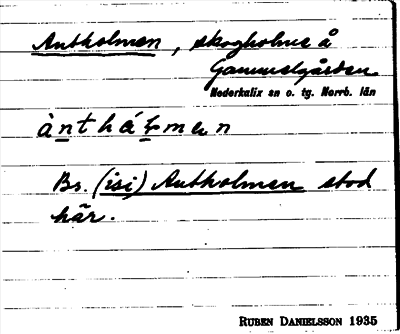 Antholmen, skogholme å
Gammelgården
Nederkalix sn o. tg. Norrb. län
ànthá̱ḷmen
Bs. (isi) Antholmen stod
här.
RUBEN DANIELSSON 1935